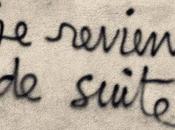 je revien
de suite